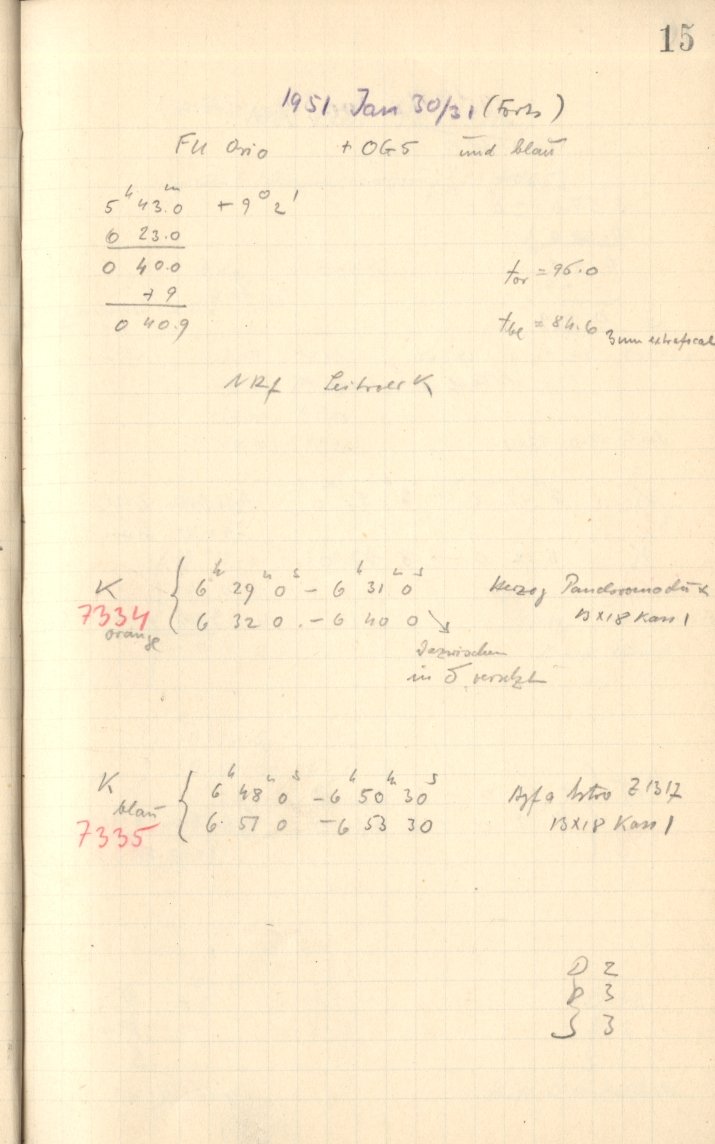 15
1951 Jan 30/31 (Forts)
FU Orio + OG5 und blau
5ʰ 43.0ᵐ + 9° 2'
6 23.0
0 40.0
+ 9
0 40.9
t_or = 96.0
t_bl = 84.6 3mm extrafocal
NRf Leitrohr K
K 7334 orange
6ʰ 29ᵐ 0ˢ – 6ʰ 31ᵐ 0ˢ Herzog
6 32 0 – 6 40 0 13X18 Kass 1
dazwischen
in δ versetzt
K blau 7335
6ʰ 48ᵐ 0ˢ – 6ʰ 50ᵐ 30ˢ Agfa Astro Z 1317
6 51 0 – 6 53 30 13X18 Kass 1
D 2
R 3
S 3